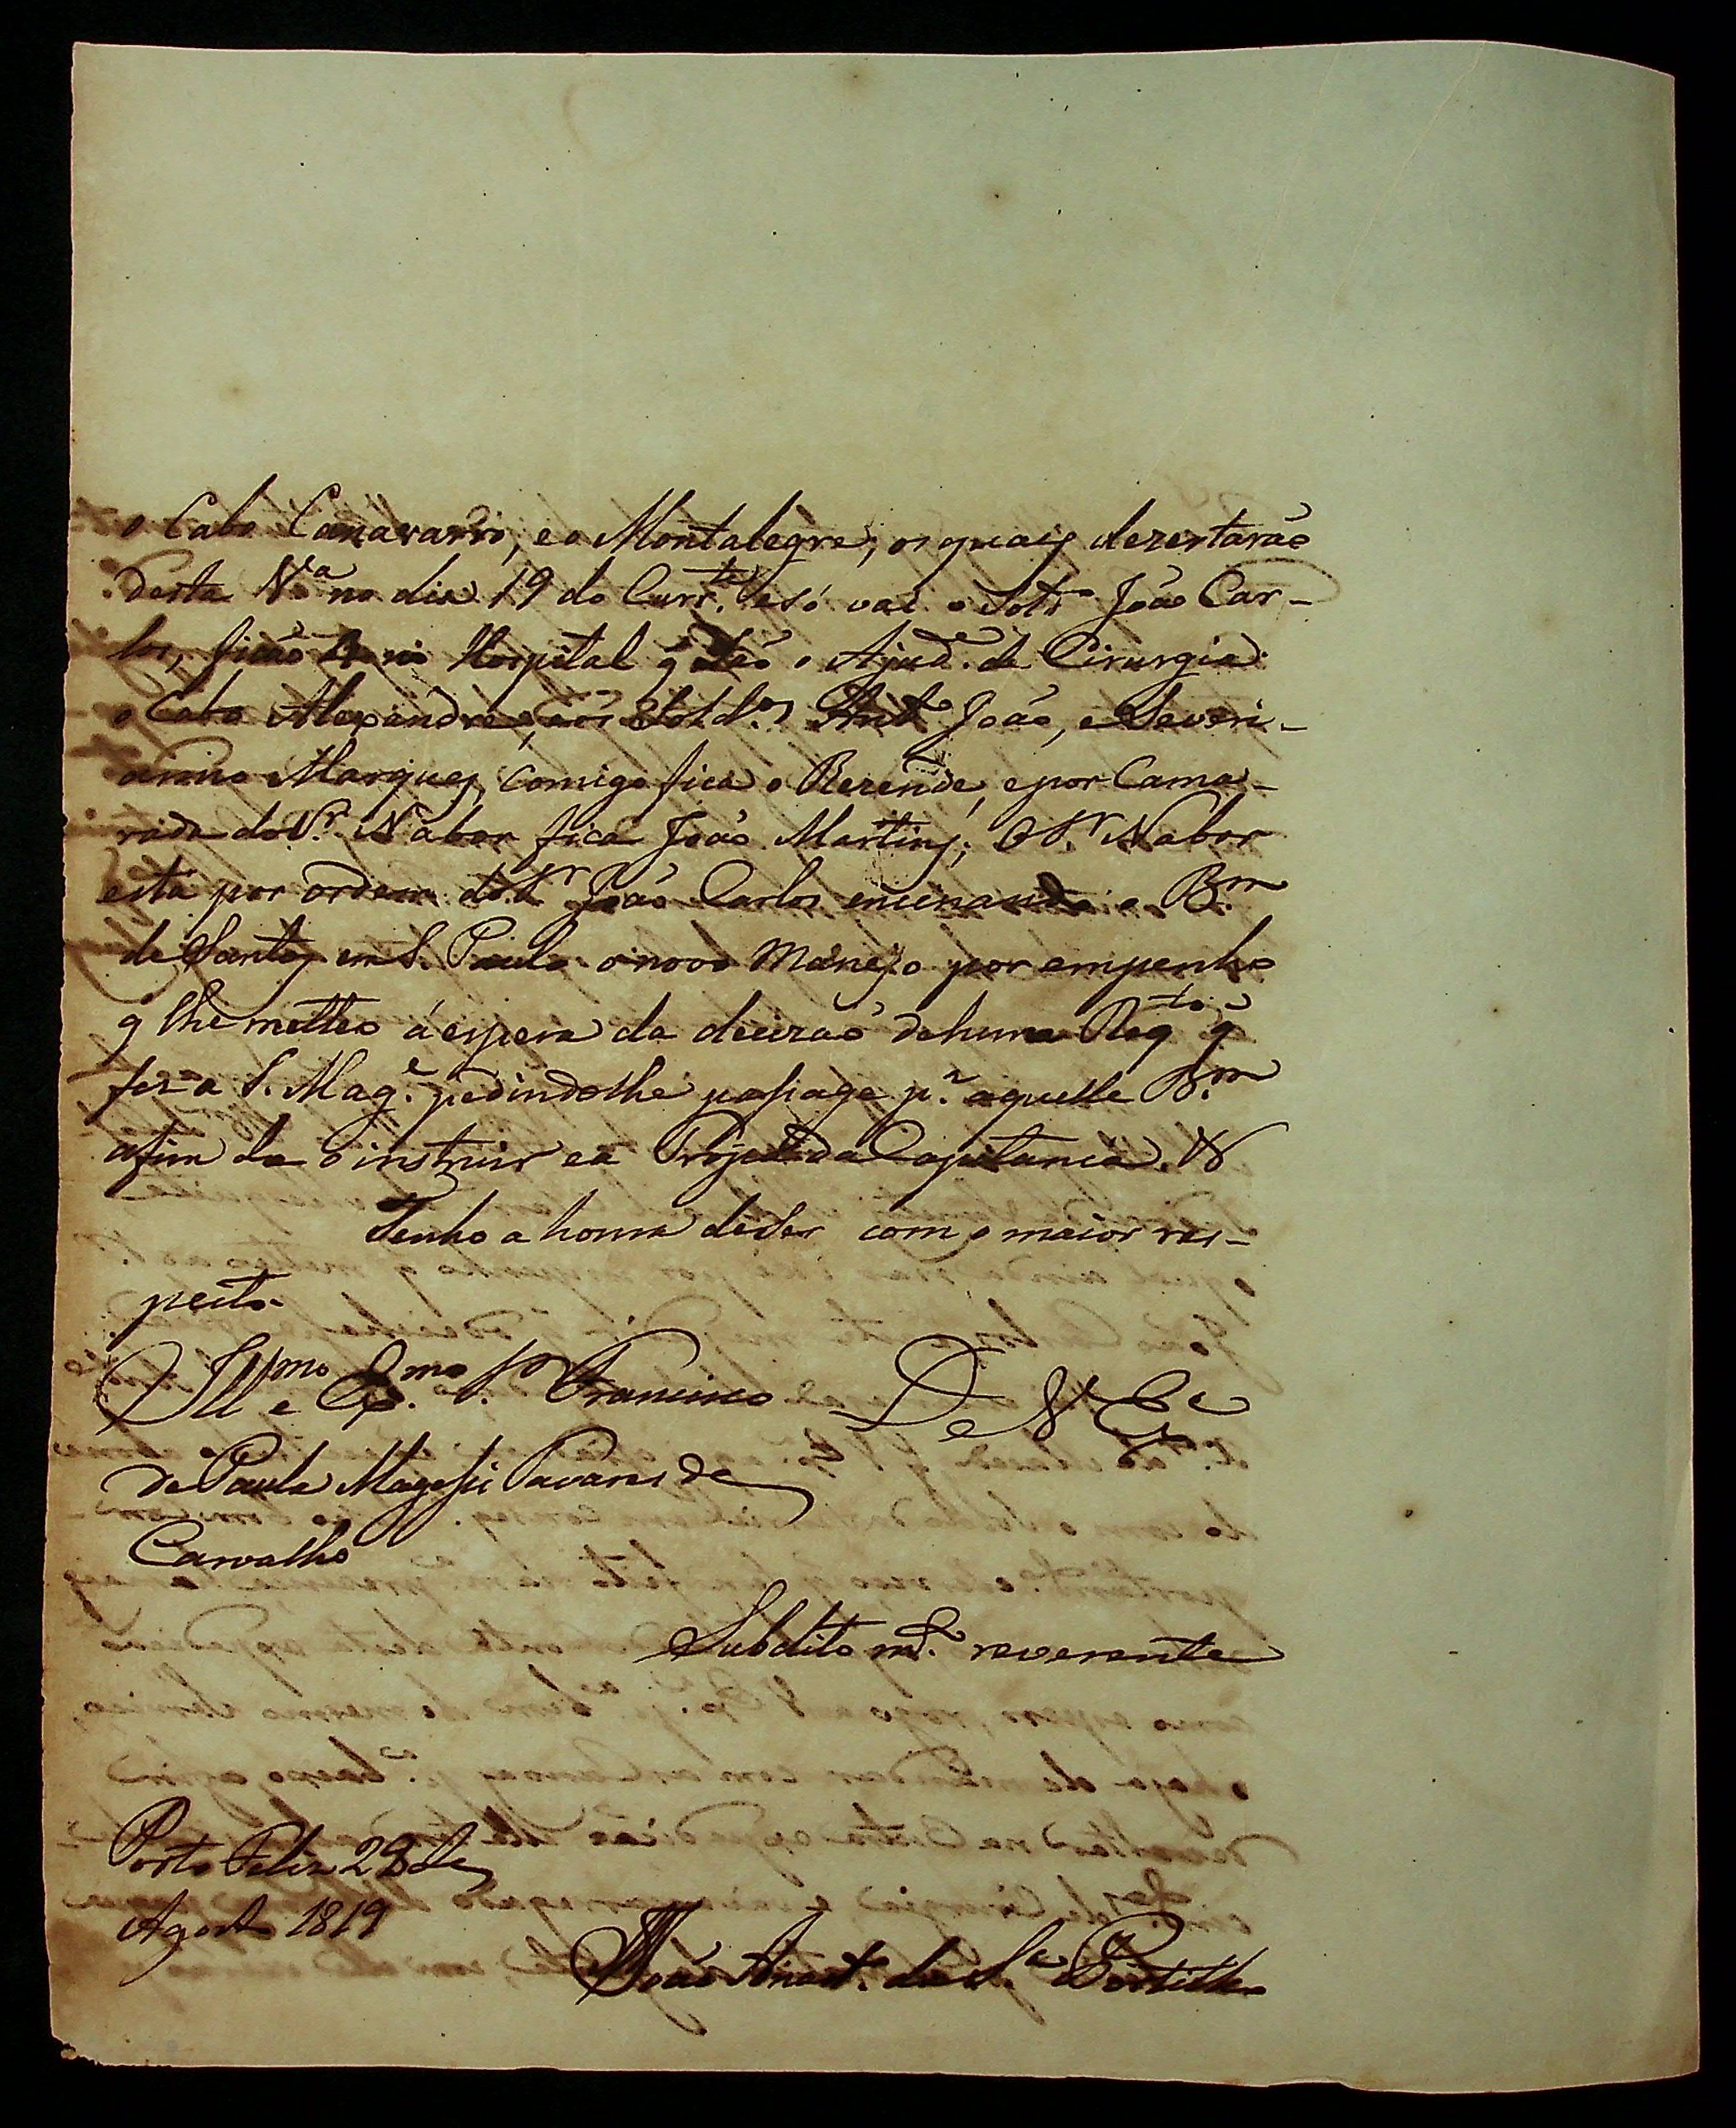 o Cabo Camararro, e o Montalegre, os quais dezertarão
desta Vᵃ no dia 19 do Currᵗᵉ. e só vai o Sotᵒ João Car-
los, ficão 4 no Hospital q̃ são o Ajudᵉ. de Cirurgia
o Cabo Alexandre, e os Soldᵒˢ Antᵒ João, e Severi-
anno Marques, comigo fica o Rezende, e por Cama-
rada do Sʳ. Nabor fica João Martins; O Sʳ. Nabor
está por ordem do Sʳ João Carlos encinando o Bᵐ
de Santos em S. Paulo o novo Manejo por empenho
q̃ lhe metteo á espera da decizão de hum Reqᵗᵒ q̃
fez a S. Magᵉ. pedindolhe passage pᵃ. aquelle B.ᵐ
afim de o instruir e a Tropa da Capitania. V
Tenho a honra de ser com o maior res-
peito
Illᵐᵒ e Exᵐᵒ. Sʳ. Francisco De V Exᶜⁱᵃ
de Paula Magessi Tavares de
Carvalho
Subdito mᵗᵒ. reverente
Porto Feliz 28 de
Agosto 1819
João Anastᵒ. da Sᵃ Portilho